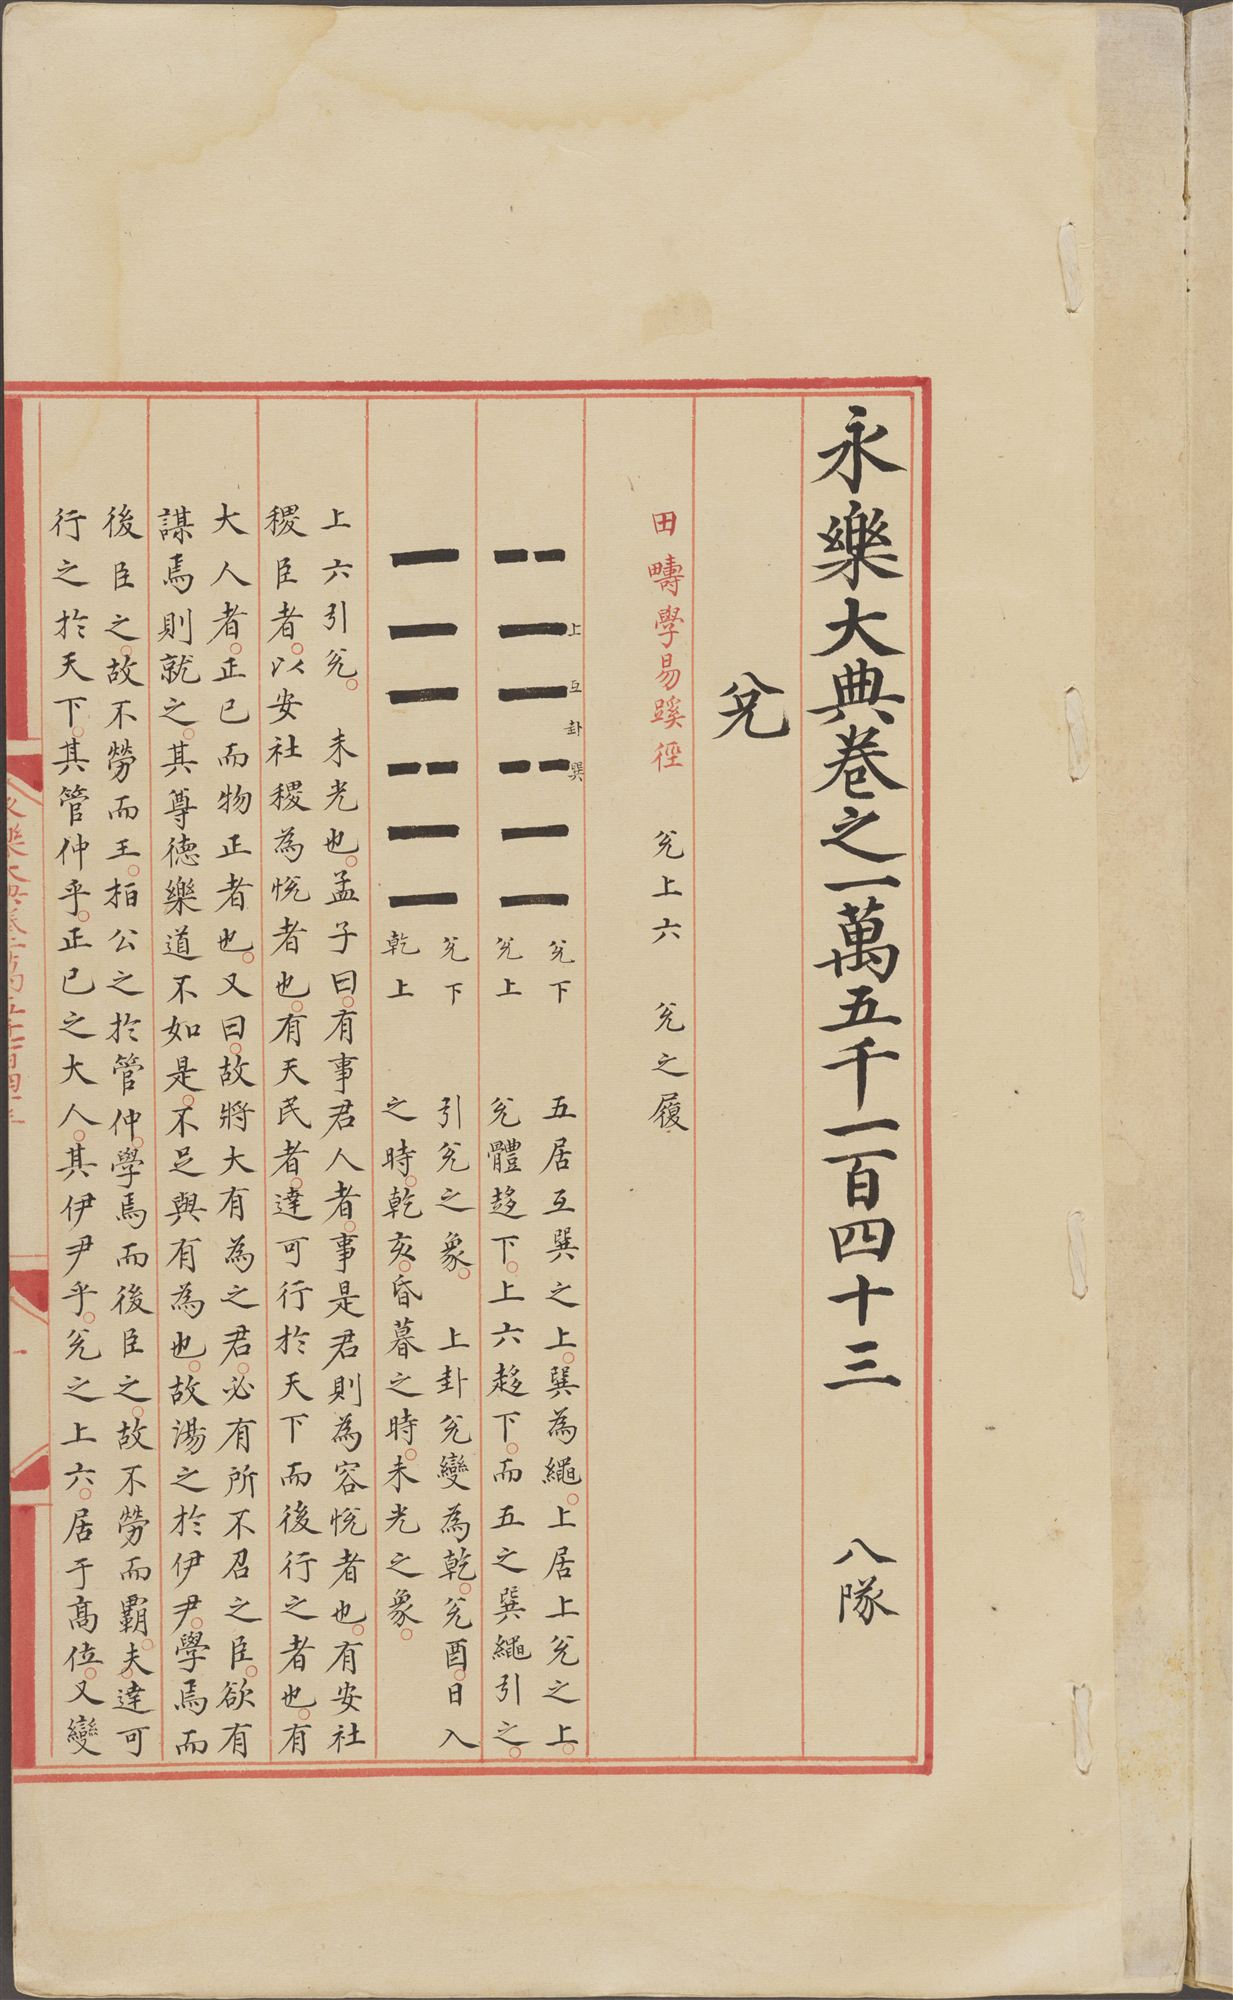 永樂大典卷之一萬五千一百四十三 八隊
兌
田疇學易蹊徑 兌上六 兌之履
上互卦巽
兌下 五居互巽之上。巽為繩。上居上兌之上。
兌上 兌體趍下。上六趍下。而五之巽繩引之。
兌下 引兌之象。 上卦兌變為乾。兌酉。日入
乾上 之時。乾亥。昏暮之時。未光之象。
上六引兌。 未光也。孟子曰。有事君人者。事是君則為容悅者也。有安社
稷臣者。以安社稷為悅者也。有天民者。達可行於天下而後行之者也。有
大人者。正已而物正者也。又曰。故將大有為之君。必有所不召之臣。欲有
謀焉則就之。其尊德樂道不如是。不足與有為也。故湯之於伊尹。學焉而
後臣之。故不勞而王。栢公之於管仲。學焉而後臣之。故不勞而霸。夫達可
行之於天下。其管仲乎。正已之大人。其伊尹乎。兌之上六。居于高位。又變